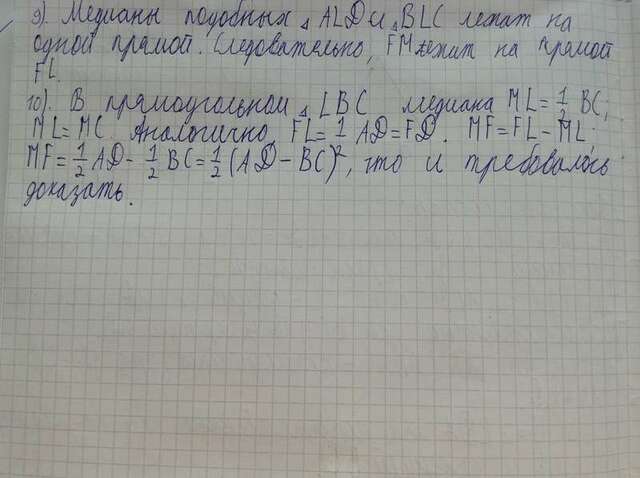 9). Медианы подобных △ALD и △BLC лежат на
одной прямой. Следовательно, FM лежит на прямой
FL.
10). В прямоугольном △LBC медиана ML = 1/2 BC;
ML = MC. Аналогично, FL = 1/2 AD = FD. MF = FL - ML;
MF = 1/2 AD - 1/2 BC = 1/2 (AD - BC)², что и требовалось
доказать.